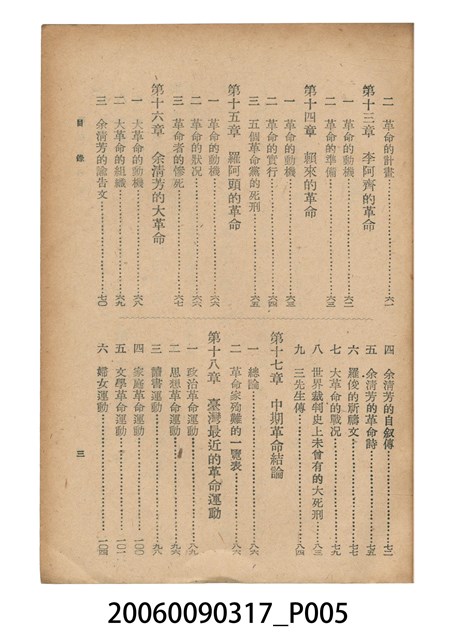 二 革命的計畫……………六一
第十三章 李阿齊的革命
一 革命的動機……………六二
二 革命的準備……………六二
第十四章 賴來的革命
一 革命的動機……………六三
二 革命的實行……………六四
三 五個革命黨的死刑……………六五
第十五章 羅阿頭的革命
一 革命的動機……………六六
二 革命的狀況……………六六
三 革命者的慘死……………六七
第十六章 余清芳的大革命
一 大革命的動機……………六八
二 大革命的組織……………六九
三 余清芳的諭告文……………七〇
目錄
四 余清芳的自敘傳……………七二
五 余清芳的革命時……………七五
六 羅俊的祈禱文……………七七
七 大革命的戰況……………七九
八 世界裁判史上未曾有的大死刑……………八三
九 三先生傳……………八四
第十七章 中期革命結論
一 總論……………八六
二 革命家殉難的一覽表……………八六
第十八章 臺灣最近的革命運動
一 政治革命運動……………八九
二 思想革命運動……………九六
三 讀書運動……………九八
四 家庭革命運動……………一〇〇
五 文學革命運動……………一〇一
六 婦女運動……………一〇四
三
20060090317_P005